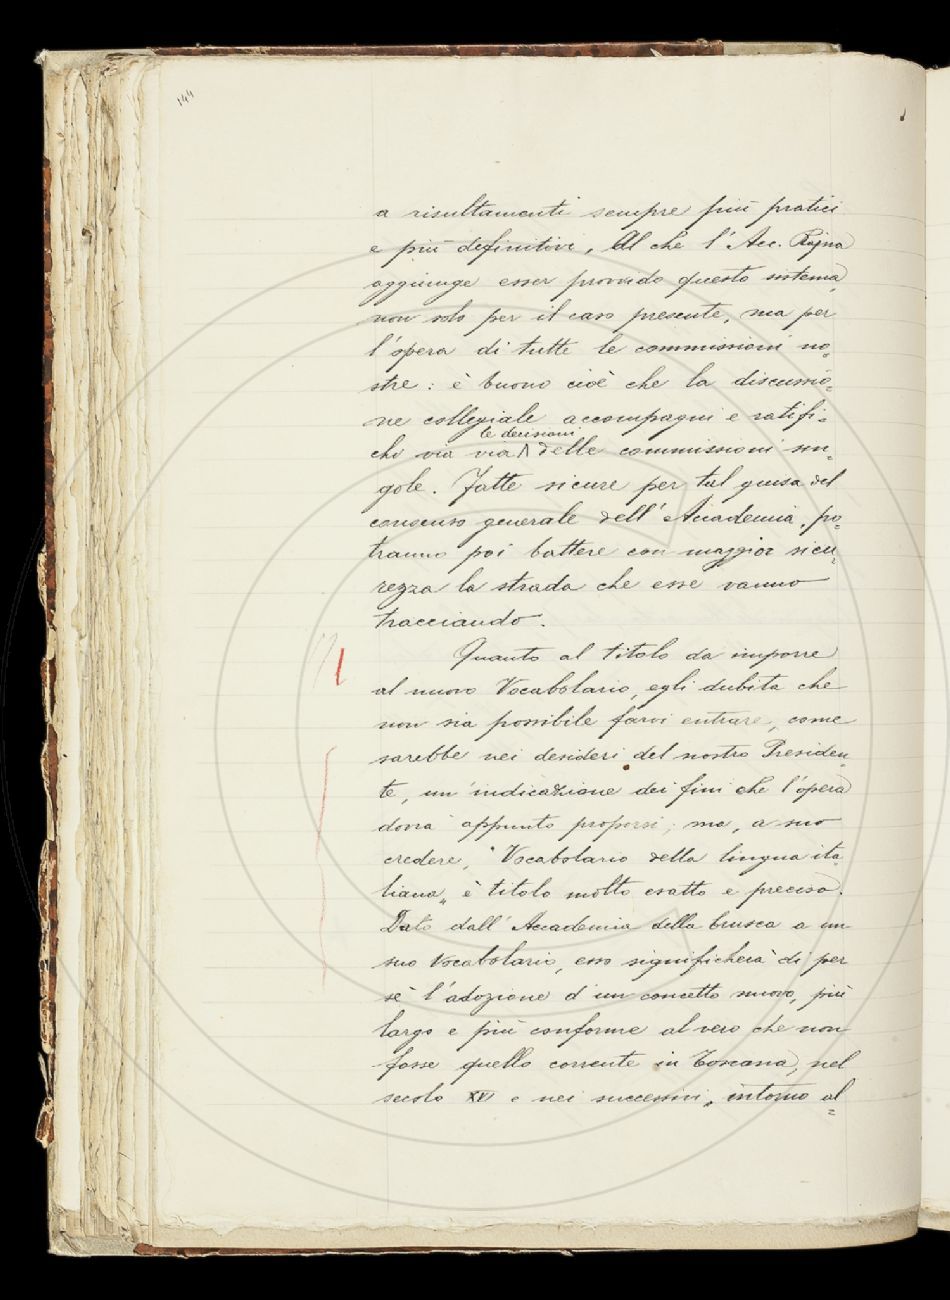 144
a risultamenti sempre più pratici
e più definitivi. Al che l'Acc. Rajna
aggiunge esser provvido questo sistema
non solo per il caso presente, ma per
l'opera di tutte le commissioni no=
stre: è buono cioè che la discussio=
ne collegiale accompagni e ratifi=
chi via via le decisioni delle commissioni sin=
gole. Fatte sicure per tal guisa del
consenso generale dell'Accademia, po=
tranno poi battere con maggior sicu=
rezza la strada che esse vanno
tracciando.
Quanto al titolo da imporre
al nuovo Vocabolario, egli dubita che
non sia possibile farvi entrare, come
sarebbe nei desideri del nostro Presiden=
te, un'indicazione dei fini che l'opera
dovrà appunto proporsi; ma, a suo
credere, "Vocabolario della lingua ita=
liana" è titolo molto esatto e preciso.
Dato dall'Accademia della Crusca a un
suo Vocabolario, esso significherà di per
sè l'adozione d'un concetto nuovo, più
largo e più conforme al vero che non
fosse quello corrente in Toscana, nel
secolo XVI e nei successivi, intorno al=